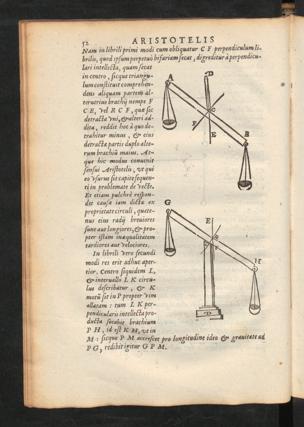 52 ARISTOTELIS
Nam in librili primi modi cum obliquatur C F perpendiculum li-
brilis, quod ipsum perpetuò bifariam secat, digreditur à perpendicu-
lari intellecta, quam secat
in centro, sicque triangu-
lum constituit comprehen-
dens aliquam partem al-
terutrius brachij nempè F
C E, vel R C F, quæ sic
detracta vni, & alteri ad-
dita, reddit hoc à quo de-
trahitur minus, & eius
detracta partis duplo alte-
rum brachiũ maius. At-
que hic modus conuenit
sensui Aristotelis, vt qui
eo vsurus sit capite sequen-
ti in problemate de vecte.
Et etiam pulchrè respon-
det causæ iam dictæ ex
proprietate circuli, quate-
nus eius radij breuiores
sunt aut longiores, & pro-
pter istam inæqualitatem
tardiores aut velociores.
In librili vero secundi
modi res erit adhuc aper-
tior. Centro siquidem L,
& interuallo L K circu-
lus describatur, & K
motũ sit in P propter vim
allatam: tum L K per-
pendicularis intellecta pro-
ducta secabit brachium
P H, id est K M, vt in
M: sicque P M accrescet pro longitudine ideo & grauitate ad
P G, redibit igitur G P M.
A
D
C
F
E
B
G
E
H